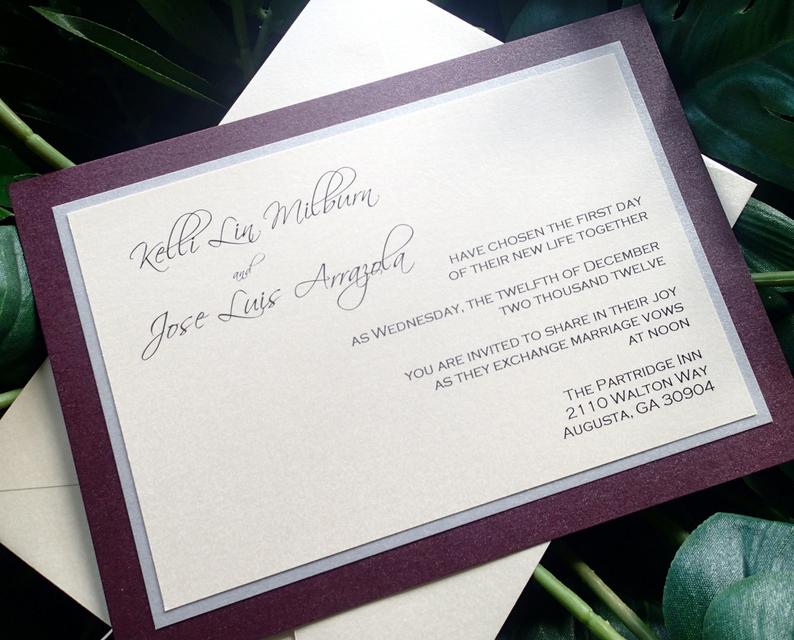 Kelli Lin Milburn
and
Jose Luis Arrazola
HAVE CHOSEN THE FIRST DAY
OF THEIR NEW LIFE TOGETHER
AS WEDNESDAY, THE TWELFTH OF DECEMBER
TWO THOUSAND TWELVE
YOU ARE INVITED TO SHARE IN THEIR JOY
AS THEY EXCHANGE MARRIAGE VOWS
AT NOON
THE PARTRIDGE INN
2110 WALTON WAY
AUGUSTA, GA 30904